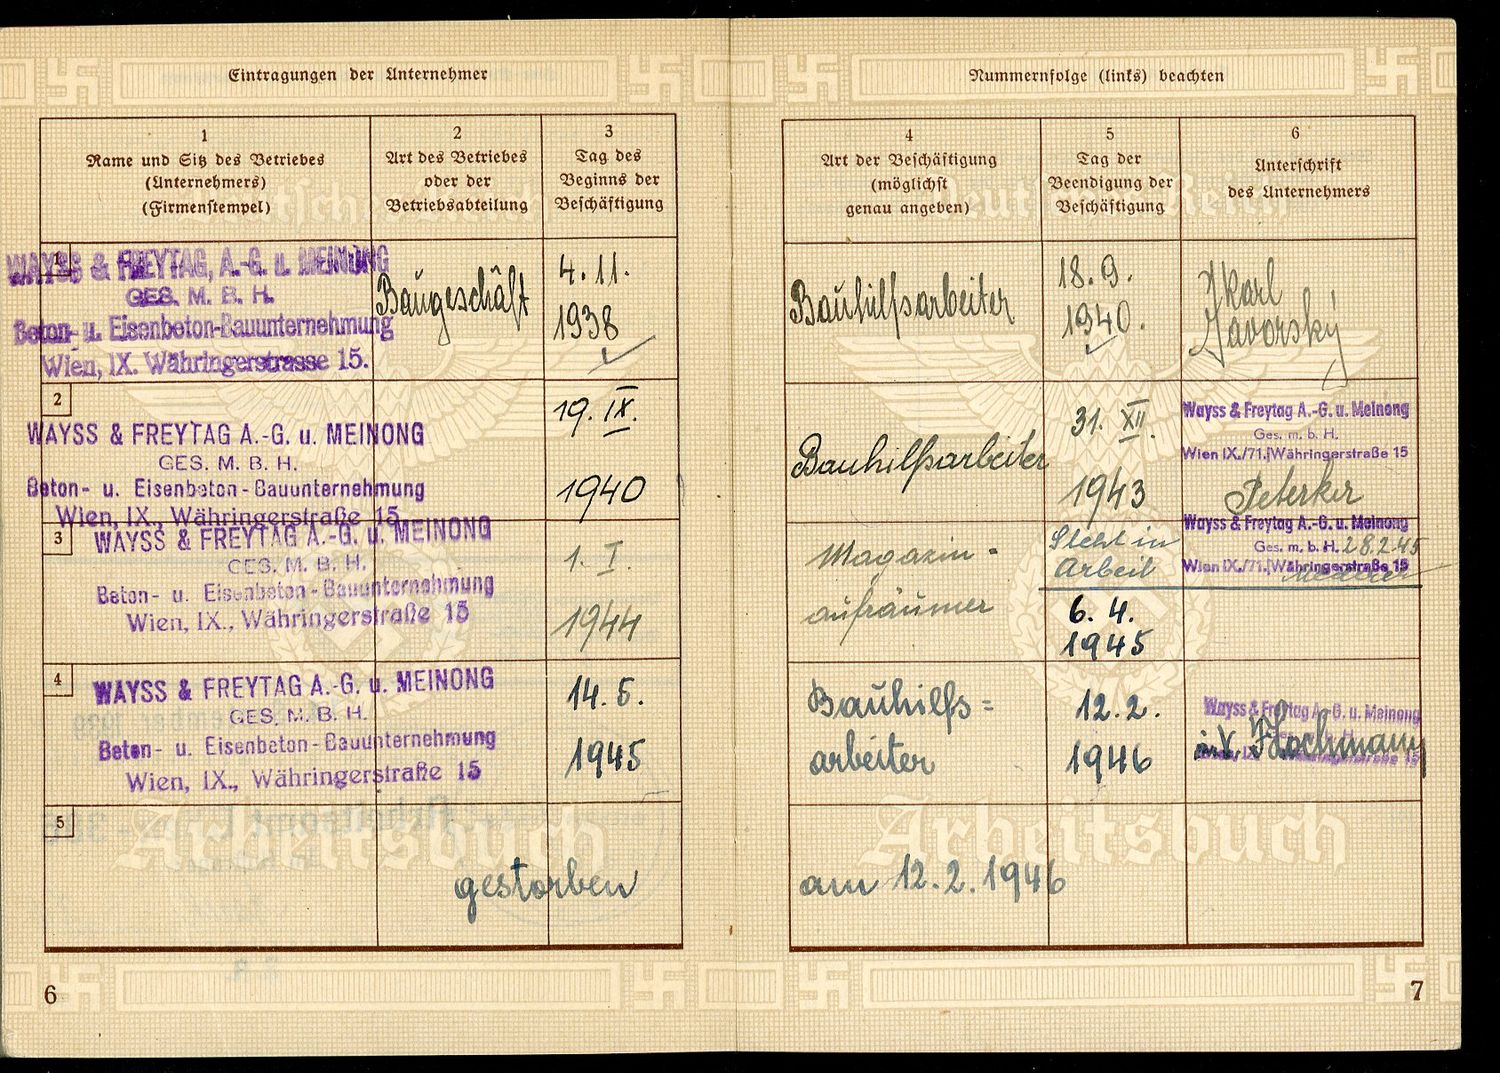 Eintragungen der Unternehmer
1
Name und Sitz des Betriebes
(Unternehmers)
(Firmenstempel)
2
Art des Betriebes
oder der
Betriebsabteilung
3
Tag des
Beginns der
Beschäftigung
1
WAYSS & FREYTAG, A.-G. u. MEINONG
GES. M. B. H.
Beton- u. Eisenbeton-Bauunternehmung
Wien, IX. Währingerstrasse 15.
Baugeschäft
4.11.
1938
2
WAYSS & FREYTAG A.-G. u. MEINONG
GES. M. B. H.
Beton- u. Eisenbeton-Bauunternehmung
Wien, IX., Währingerstraße 15
19. IX.
1940
3
WAYSS & FREYTAG A.-G. u. MEINONG
GES. M. B. H.
Beton- u. Eisenbeton-Bauunternehmung
Wien, IX., Währingerstraße 15
1. I.
1944
4
WAYSS & FREYTAG A.-G. u. MEINONG
GES. M. B. H.
Beton- u. Eisenbeton-Bauunternehmung
Wien, IX., Währingerstraße 15
14. 5.
1945
5
gestorben
Arbeitsbuch
6
Nummernfolge (links) beachten
4
Art der Beschäftigung
(möglichst
genau angeben)
5
Tag der
Beendigung der
Beschäftigung
6
Unterschrift
des Unternehmers
Deutsches Reich
Bauhilfsarbeiter
18.9.
1940.
Karl
Javorsky
Bauhilfsarbeiter
31. XII.
1943
Wayss & Freytag A.-G. u. Meinong
Ges. m. b. H.
Wien IX./71. Währingerstraße 15
Peterker
Magazin-
aufräumer
Steht in
Arbeit
6. 4.
1945
Wayss & Freytag A.-G. u. Meinong
Ges. m. b. H. 28.2.45
Wien IX./71. Währingerstraße 15
Bauhilfs=
arbeiter
12.2.
1946
Wayss & Freytag A.-G. u. Meinong
i.V. Hochmann
am 12.2.1946
Arbeitsbuch
7